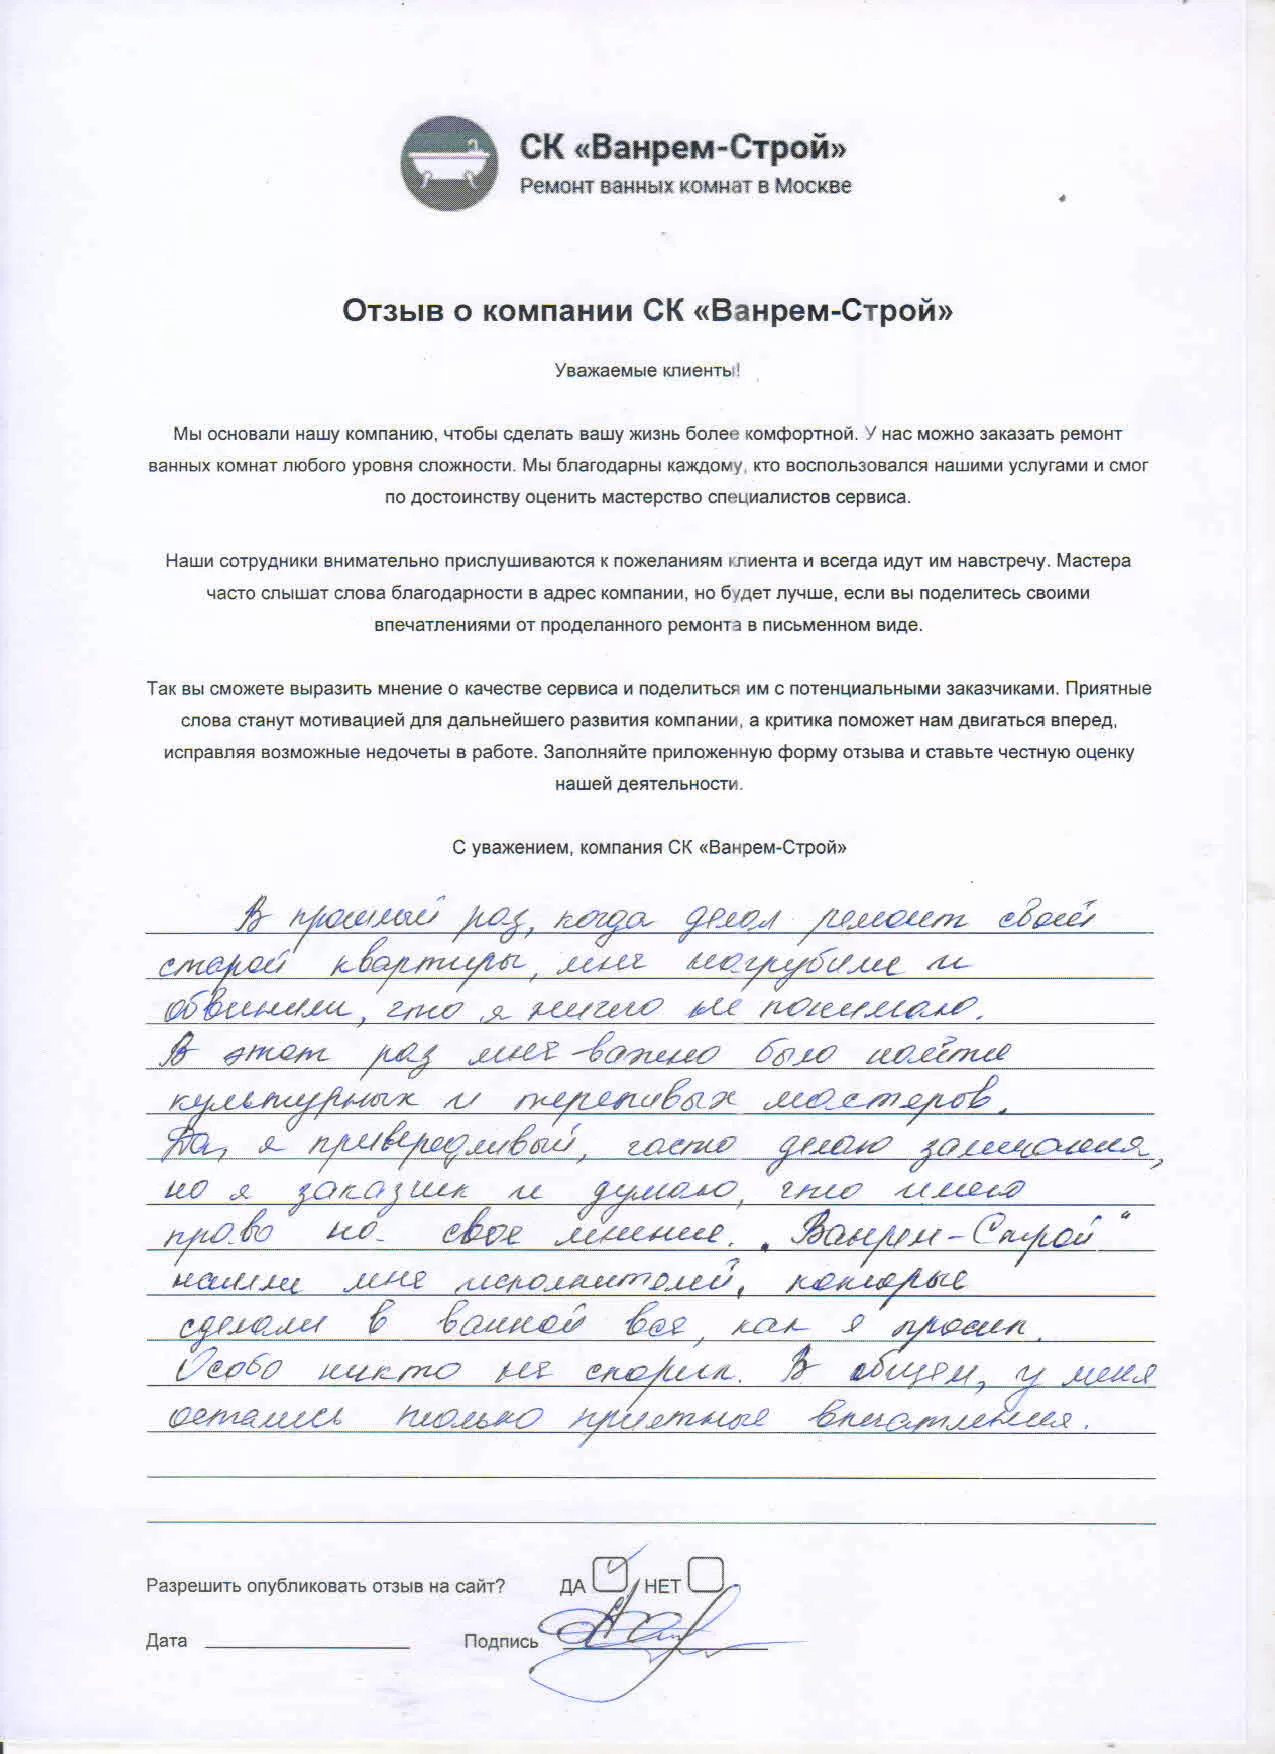 СК «Ванрем-Строй»
Ремонт ванных комнат в Москве
Отзыв о компании СК «Ванрем-Строй»
Уважаемые клиенты!
Мы основали нашу компанию, чтобы сделать вашу жизнь более комфортной. У нас можно заказать ремонт
ванных комнат любого уровня сложности. Мы благодарны каждому, кто воспользовался нашими услугами и смог
по достоинству оценить мастерство специалистов сервиса.
Наши сотрудники внимательно прислушиваются к пожеланиям клиента и всегда идут им навстречу. Мастера
часто слышат слова благодарности в адрес компании, но будет лучше, если вы поделитесь своими
впечатлениями от проделанного ремонта в письменном виде.
Так вы сможете выразить мнение о качестве сервиса и поделиться им с потенциальными заказчиками. Приятные
слова станут мотивацией для дальнейшего развития компании, а критика поможет нам двигаться вперед,
исправляя возможные недочеты в работе. Заполняйте приложенную форму отзыва и ставьте честную оценку
нашей деятельности.
С уважением, компания СК «Ванрем-Строй»
В прошлый раз, когда делал ремонт своей
старой квартиры, мне нагрубили и
обвинили, что я ничего не понимаю.
В этот раз мне важно было найти
культурных и терпеливых мастеров.
Да, я привередливый, часто делаю замечания,
но я заказчик и думаю, что имею
право на свое мнение. „Ванрем-Строй"
нашли мне исполнителей, которые
сделали в ванной все, как я просил.
Особо никто не спорил. В общем, у меня
остались только приятные впечатления.
Разрешить опубликовать отзыв на сайт? ДА НЕТ
Дата Подпись